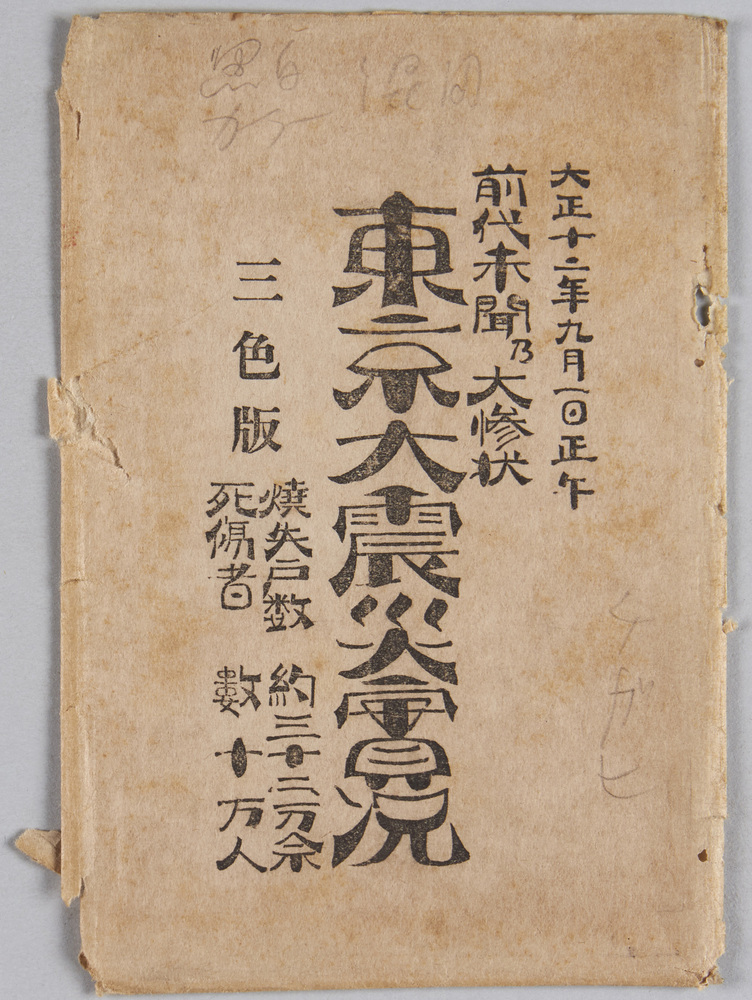 大正十二年九月一日正午
前代未聞乃大惨状
東京大震災實況
三色版
燒失戸数 約三十二万余
死傷者 數十万人